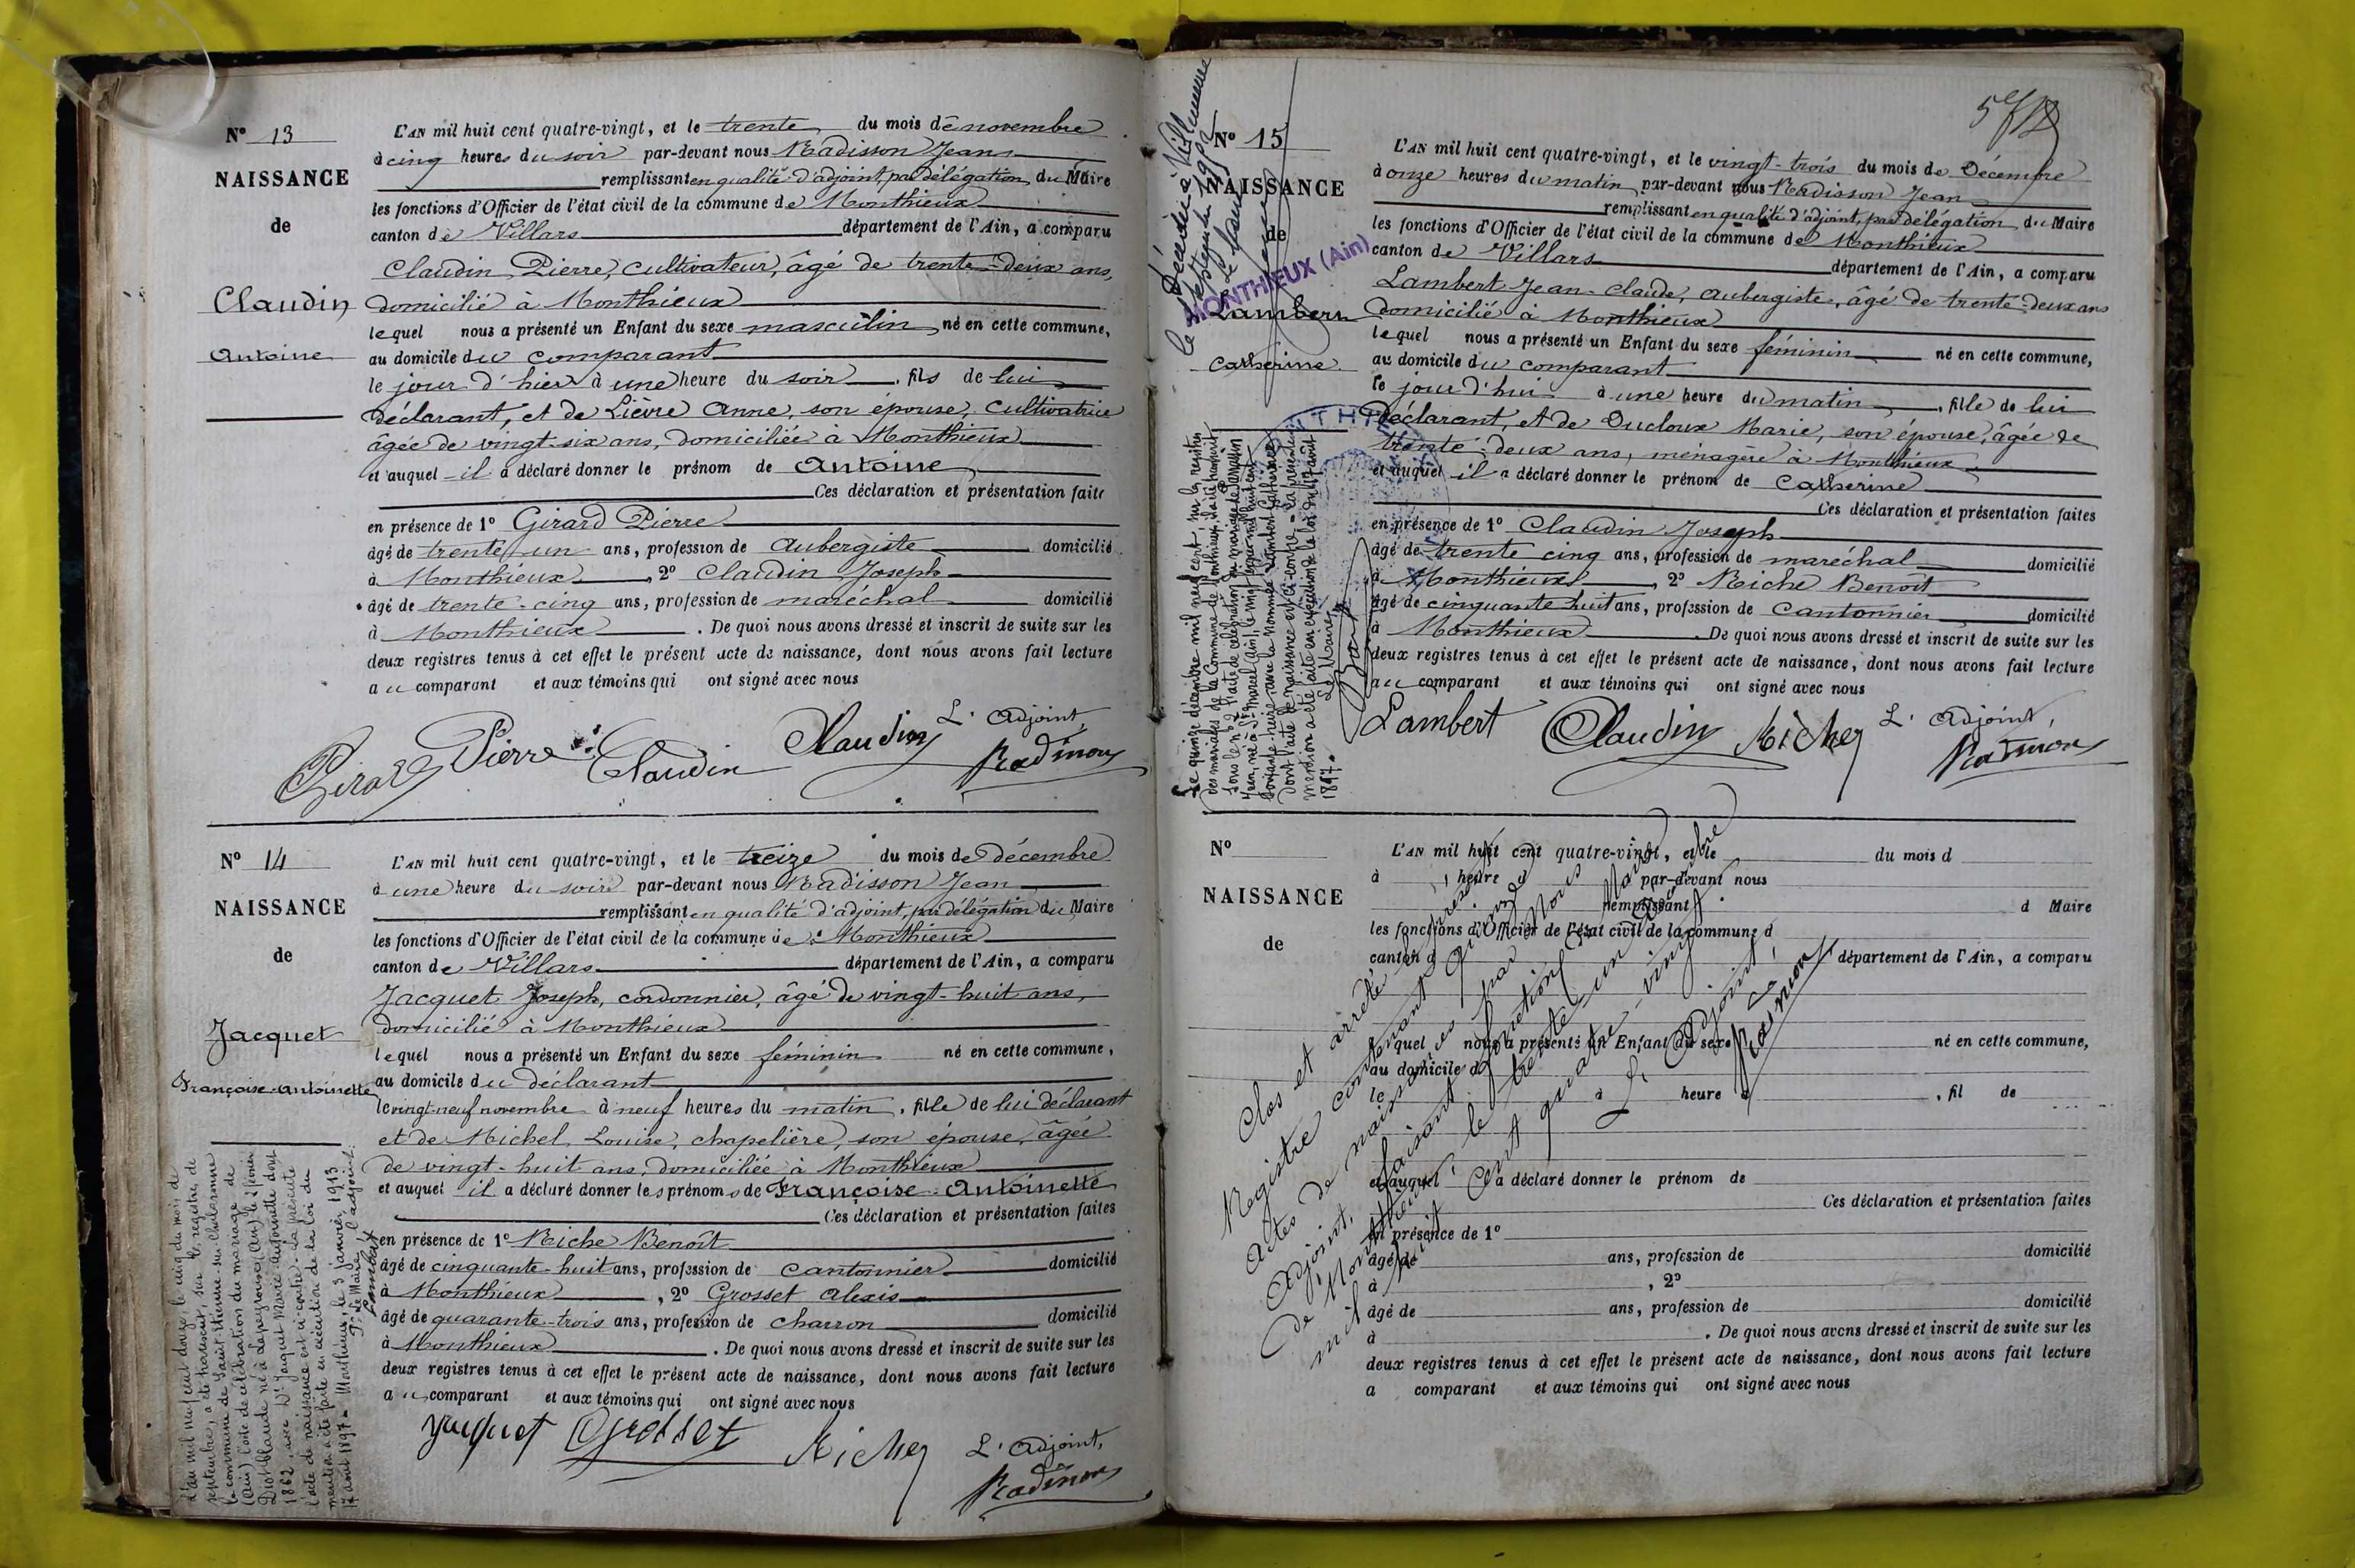 N° 13
NAISSANCE
de
Claudin
Antoine
L'AN mil huit cent quatre-vingt, et le trente du mois de novembre
à cinq heures du soir par-devant nous Radisson Jean
remplissant en qualité d'adjoint, par délégation du Maire
les fonctions d'Officier de l'état civil de la commune de Monthieux
canton de Villars département de l'Ain, a comparu
Claudin Pierre, cultivateur, âgé de trente-deux ans,
domicilié à Monthieux
lequel nous a présenté un Enfant du sexe masculin né en cette commune,
au domicile du comparant
le jour d'hier à une heure du soir, fils de lui
déclarant, et de Lièvre Anne, son épouse, cultivatrice
âgée de vingt-six ans, domiciliée à Monthieux
et auquel il a déclaré donner le prénom de Antoine
Ces déclaration et présentation faite
en présence de 1° Girard Pierre
âgé de trente un ans, profession de aubergiste domicilié
à Monthieux, 2° Claudin Joseph
âgé de trente-cinq ans, profession de maréchal domicilié
à Monthieux. De quoi nous avons dressé et inscrit de suite sur les
deux registres tenus à cet effet le présent acte de naissance, dont nous avons fait lecture
au comparant et aux témoins qui ont signé avec nous
L'adjoint,
Girard Pierre Claudin Claudin Radisson
N° 14
NAISSANCE
de
Jacquet
Françoise-Antoinette
L'AN mil huit cent quatre-vingt, et le treize du mois de décembre
à une heure du soir par-devant nous Radisson Jean
remplissant en qualité d'adjoint, par délégation du Maire
les fonctions d'Officier de l'état civil de la commune de Monthieux
canton de Villars département de l'Ain, a comparu
Jacquet Joseph, cordonnier, âgé de vingt-huit ans,
domicilié à Monthieux
lequel nous a présenté un Enfant du sexe féminin né en cette commune,
au domicile du déclarant
le vingt-neuf novembre à neuf heures du matin, fille de lui déclarant
et de Michel Louise, chapelière, son épouse, âgée
de vingt-huit ans, domiciliée à Monthieux
et auquel il a déclaré donner les prénoms de Françoise-Antoinette
Ces déclaration et présentation faites
en présence de 1° Riche Benoît
âgé de cinquante-huit ans, profession de cantonnier domicilié
à Monthieux, 2° Grosset Alexis
âgé de quarante-trois ans, profession de charron domicilié
à Monthieux. De quoi nous avons dressé et inscrit de suite sur les
deux registres tenus à cet effet le présent acte de naissance, dont nous avons fait lecture
au comparant et aux témoins qui ont signé avec nous
Jacquet Grosset Riche L'adjoint,
Radisson
L'an mil neuf cent douze, le cinq du mois de
septembre, a été transcrit, sur le registre de
la commune de Saint-Etienne-sur-Chalaronne
(Ain) l'acte de célébration du mariage de
Claude né à Lapeyrouse (Ain) le 2 février
1862, avec Dlle Jacquet Marie Antoinette dont
l'acte de naissance est ci-contre. La présente
mention a été faite en exécution de la loi du
17 août 1897. Monthieux, le 3 janvier 1913
Pr le Maire, l'adjoint
Lambert
N° 15
NAISSANCE
de
Lambert
Catherine
Décédée à Villeurbanne
MONTHIEUX (Ain)
L'AN mil huit cent quatre-vingt, et le vingt-trois du mois de Décembre
à onze heures du matin par-devant nous Radisson Jean
remplissant en qualité d'adjoint, par délégation du Maire
les fonctions d'Officier de l'état civil de la commune de Monthieux
canton de Villars département de l'Ain, a comparu
Lambert Jean-Claude, aubergiste, âgé de trente-deux ans
domicilié à Monthieux
lequel nous a présenté un Enfant du sexe féminin né en cette commune,
au domicile du comparant
le jour d'hui à une heure du matin, fille de lui
déclarant, et de Ducloux Marie, son épouse, âgée de
trente-deux ans, ménagère à Monthieux
et auquel il a déclaré donner le prénom de Catherine
Ces déclaration et présentation faites
en présence de 1° Claudin Joseph
âgé de trente cinq ans, profession de maréchal domicilié
à Monthieux, 2° Riche Benoît
âgé de cinquante huit ans, profession de cantonnier domicilié
à Monthieux. De quoi nous avons dressé et inscrit de suite sur les
deux registres tenus à cet effet le présent acte de naissance, dont nous avons fait lecture
au comparant et aux témoins qui ont signé avec nous
Lambert Claudin Riche L'adjoint,
Radisson
Le quinze décembre mil neuf cent, sur le registre
des mariages de la Commune de Monthieux, a été transcrit
sous le n° 2 l'acte de célébration du mariage de
né à St Marcel (Ain), le vingt mil huit cent
soixante-, avec la nommée Lambert Catherine
dont l'acte de naissance est ci-contre. La présente
mention a été faite en exécution de la loi du 17 août
1897.
Le Maire
N°
NAISSANCE
de
L'AN mil huit cent quatre-vingt, et le du mois d
à heure d par-devant nous
remplissant d Maire
les fonctions d'Officier de l'état civil de la commune d
canton d département de l'Ain, a comparu
lequel nous a présenté un Enfant du sexe né en cette commune,
au domicile d
le à heure d, fil de
et auquel a déclaré donner le prénom de
Ces déclaration et présentation faites
en présence de 1°
âgé de ans, profession de domicilié
à , 2°
âgé de ans, profession de domicilié
à . De quoi nous avons dressé et inscrit de suite sur les
deux registres tenus à cet effet le présent acte de naissance, dont nous avons fait lecture
a comparant et aux témoins qui ont signé avec nous
Clos et arrêté le présent
Registre contenant quinze
actes de naissances par Nous
Adjoint, faisant fonctions de Maire
de Monthieux, le trente un Décembre
mil huit cent quatre-vingt.
L'Adjoint,
Radisson